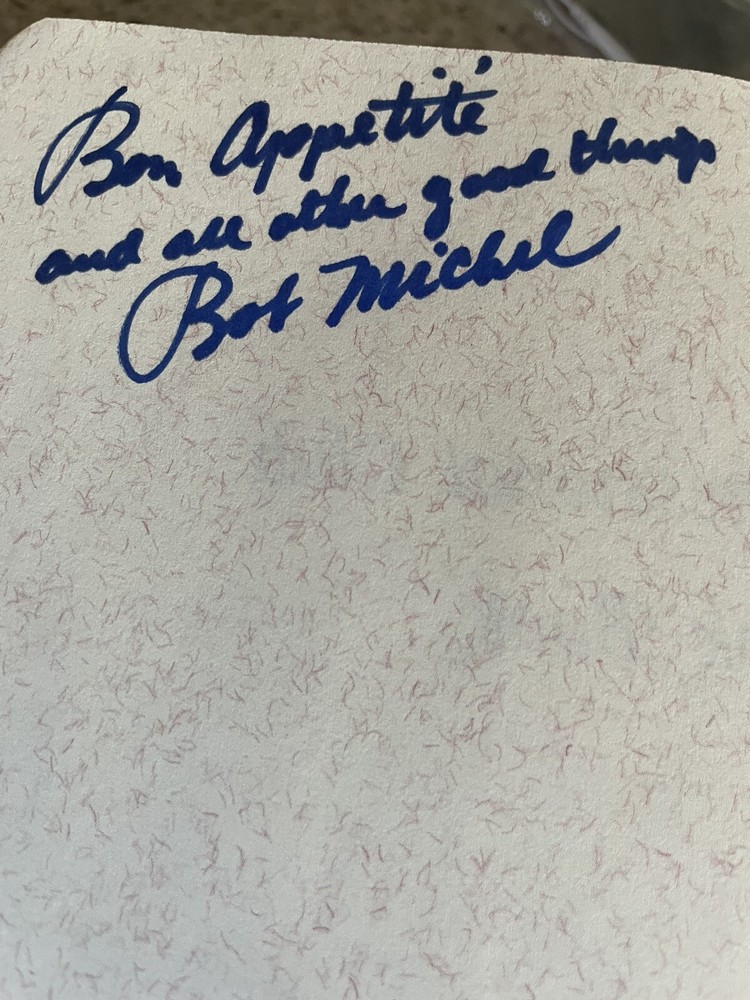 Bon Appetité
and all other good things
Bob Michel